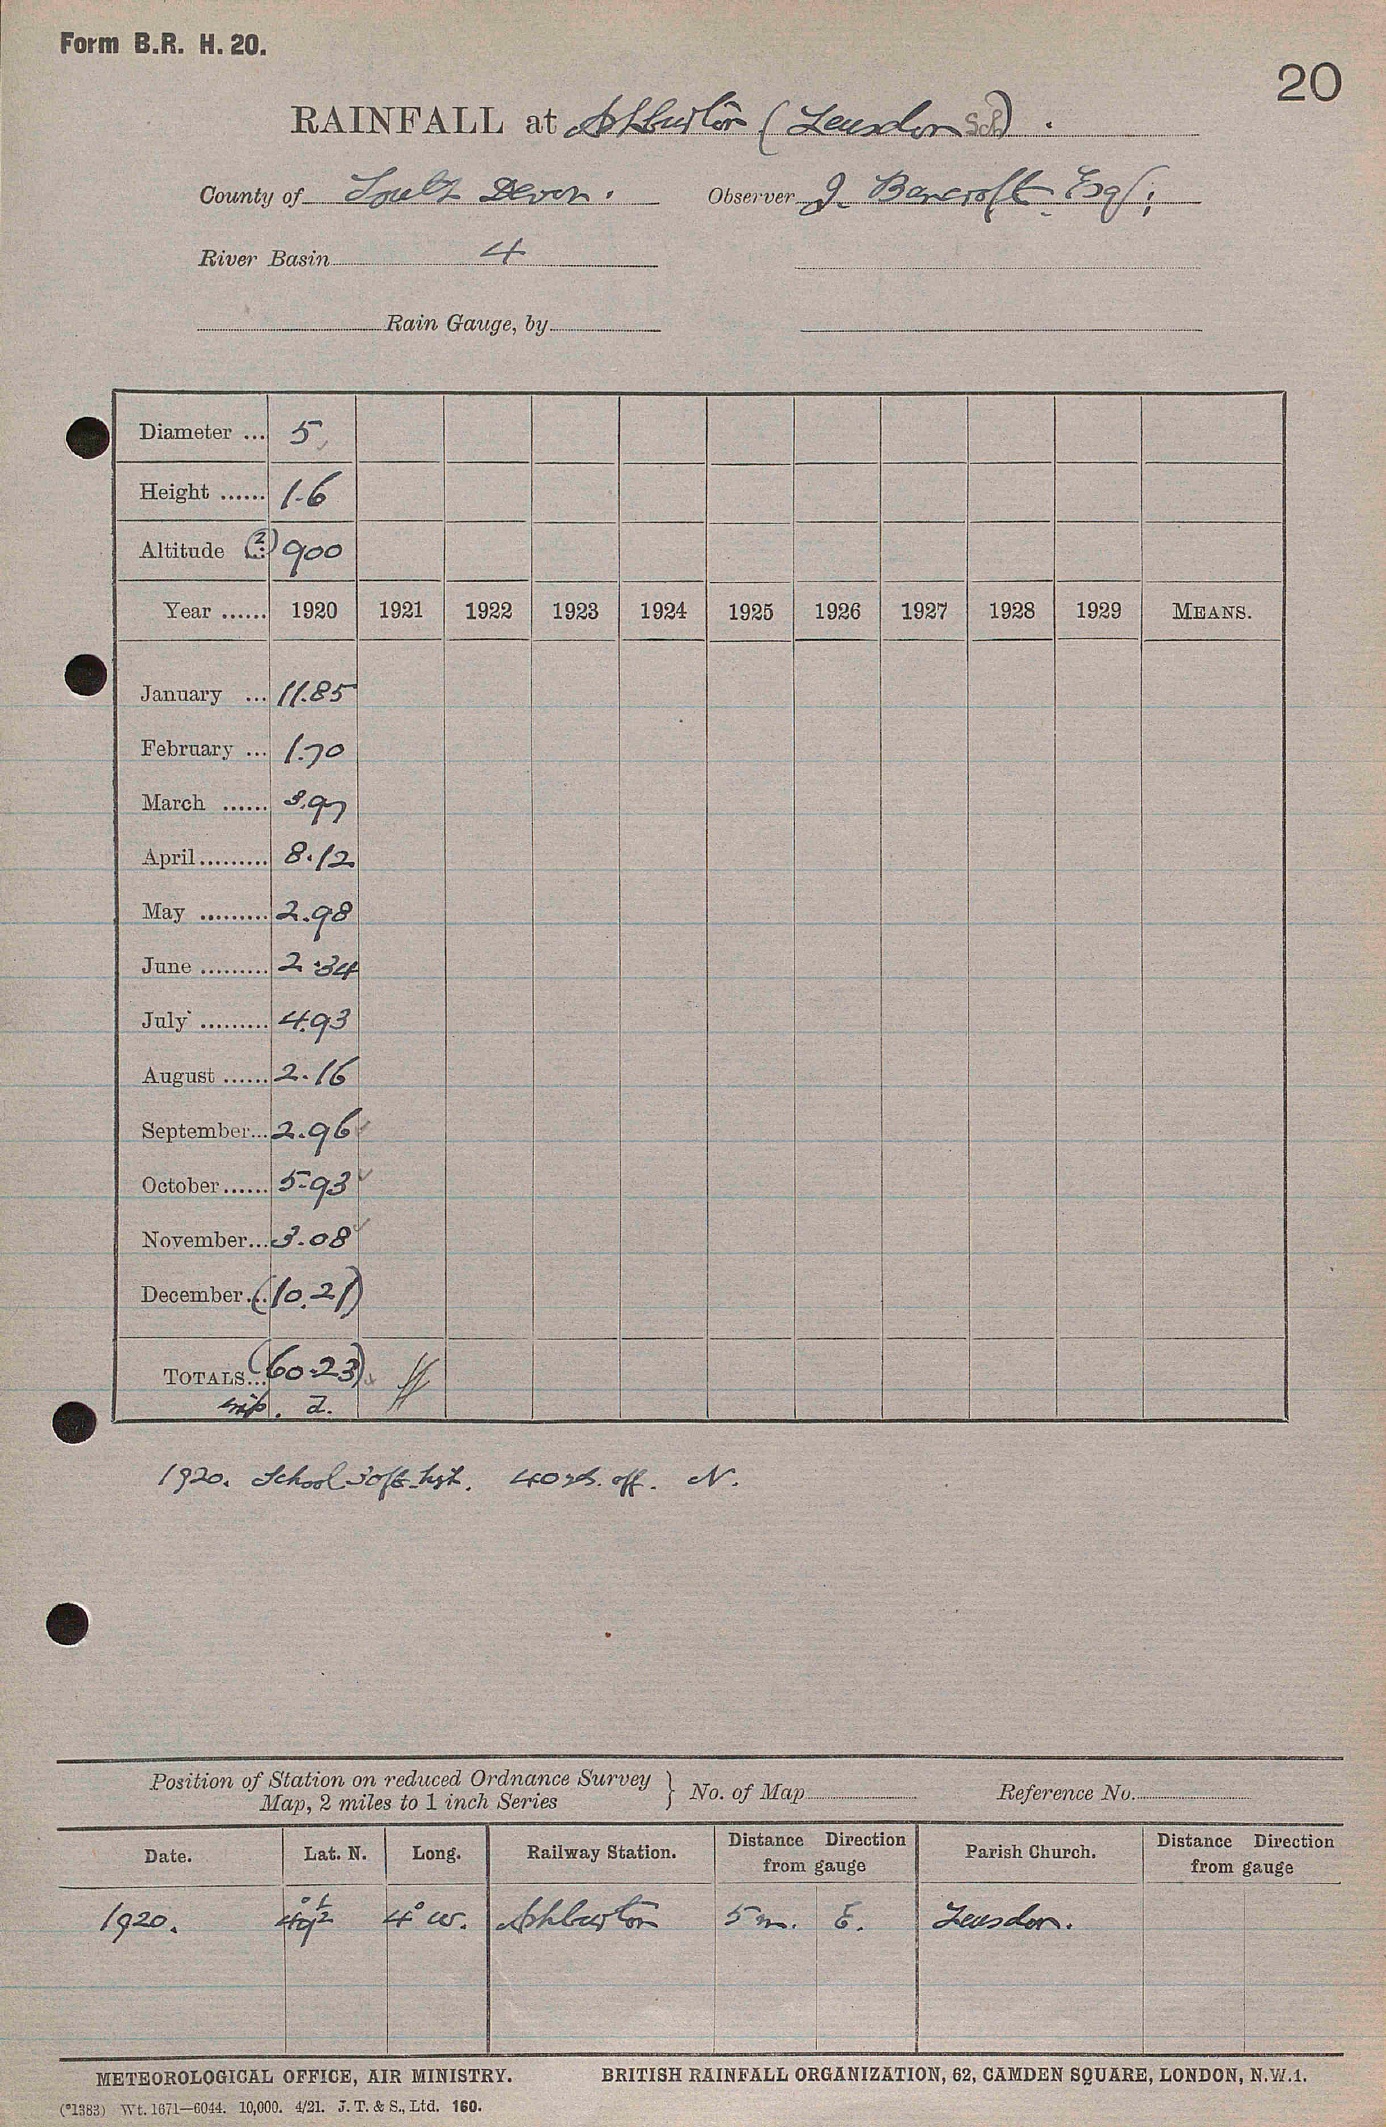 Form B.R. H. 20.
20
RAINFALL at Ashburton (Leusdon Sch) .
County of South Devon. Observer J. Bancroft Esq;
River Basin 4
Rain Gauge, by
Diameter ... 5
Height ...... 1.6
Altitude (?) 900
Year ...... 1920 1921 1922 1923 1924 1925 1926 1927 1928 1929 MEANS.
January ... 11.85
February ... 1.70
March ...... 3.97
April ......... 8.12
May ......... 2.98
June ......... 2.34
July ......... 4.93
August ...... 2.16
September... 2.96
October ...... 5.93
November... 3.08
December... (10.21)
TOTALS... (60.23)
1920. School 30ft hgt. 40 yds. off. N.
Position of Station on reduced Ordnance Survey
Map, 2 miles to 1 inch Series } No. of Map Reference No.
Date. Lat. N. Long. Railway Station. Distance Direction from gauge Parish Church. Distance Direction from gauge
1920. 49°½ 4° W. Ashburton 5 m. E. Leusdon.
METEOROLOGICAL OFFICE, AIR MINISTRY. BRITISH RAINFALL ORGANIZATION, 62, CAMDEN SQUARE, LONDON, N.W.1.
(*1383) Wt. 1671—6044. 10,000. 4/21. J. T. & S., Ltd. 160.